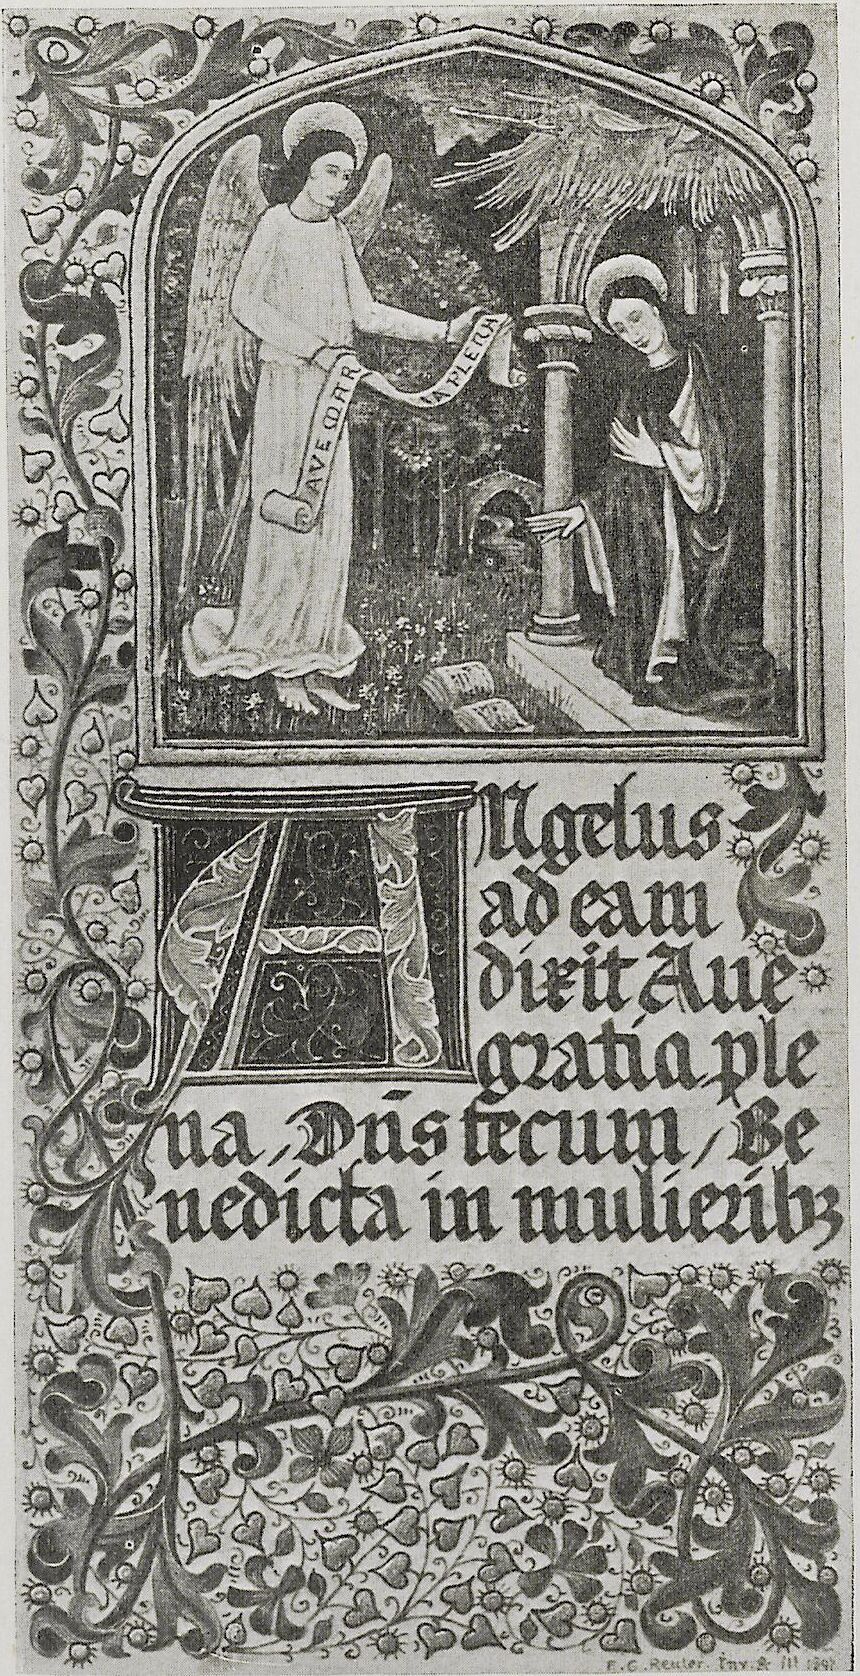 AVE MAR
IA PLENA
ANgelus
ad eam
dixit Aue
gratia ple
na, Dn̄s tecum, Be
nedicta in mulieribꝫ
E. G. Reuter. Inv. & ill